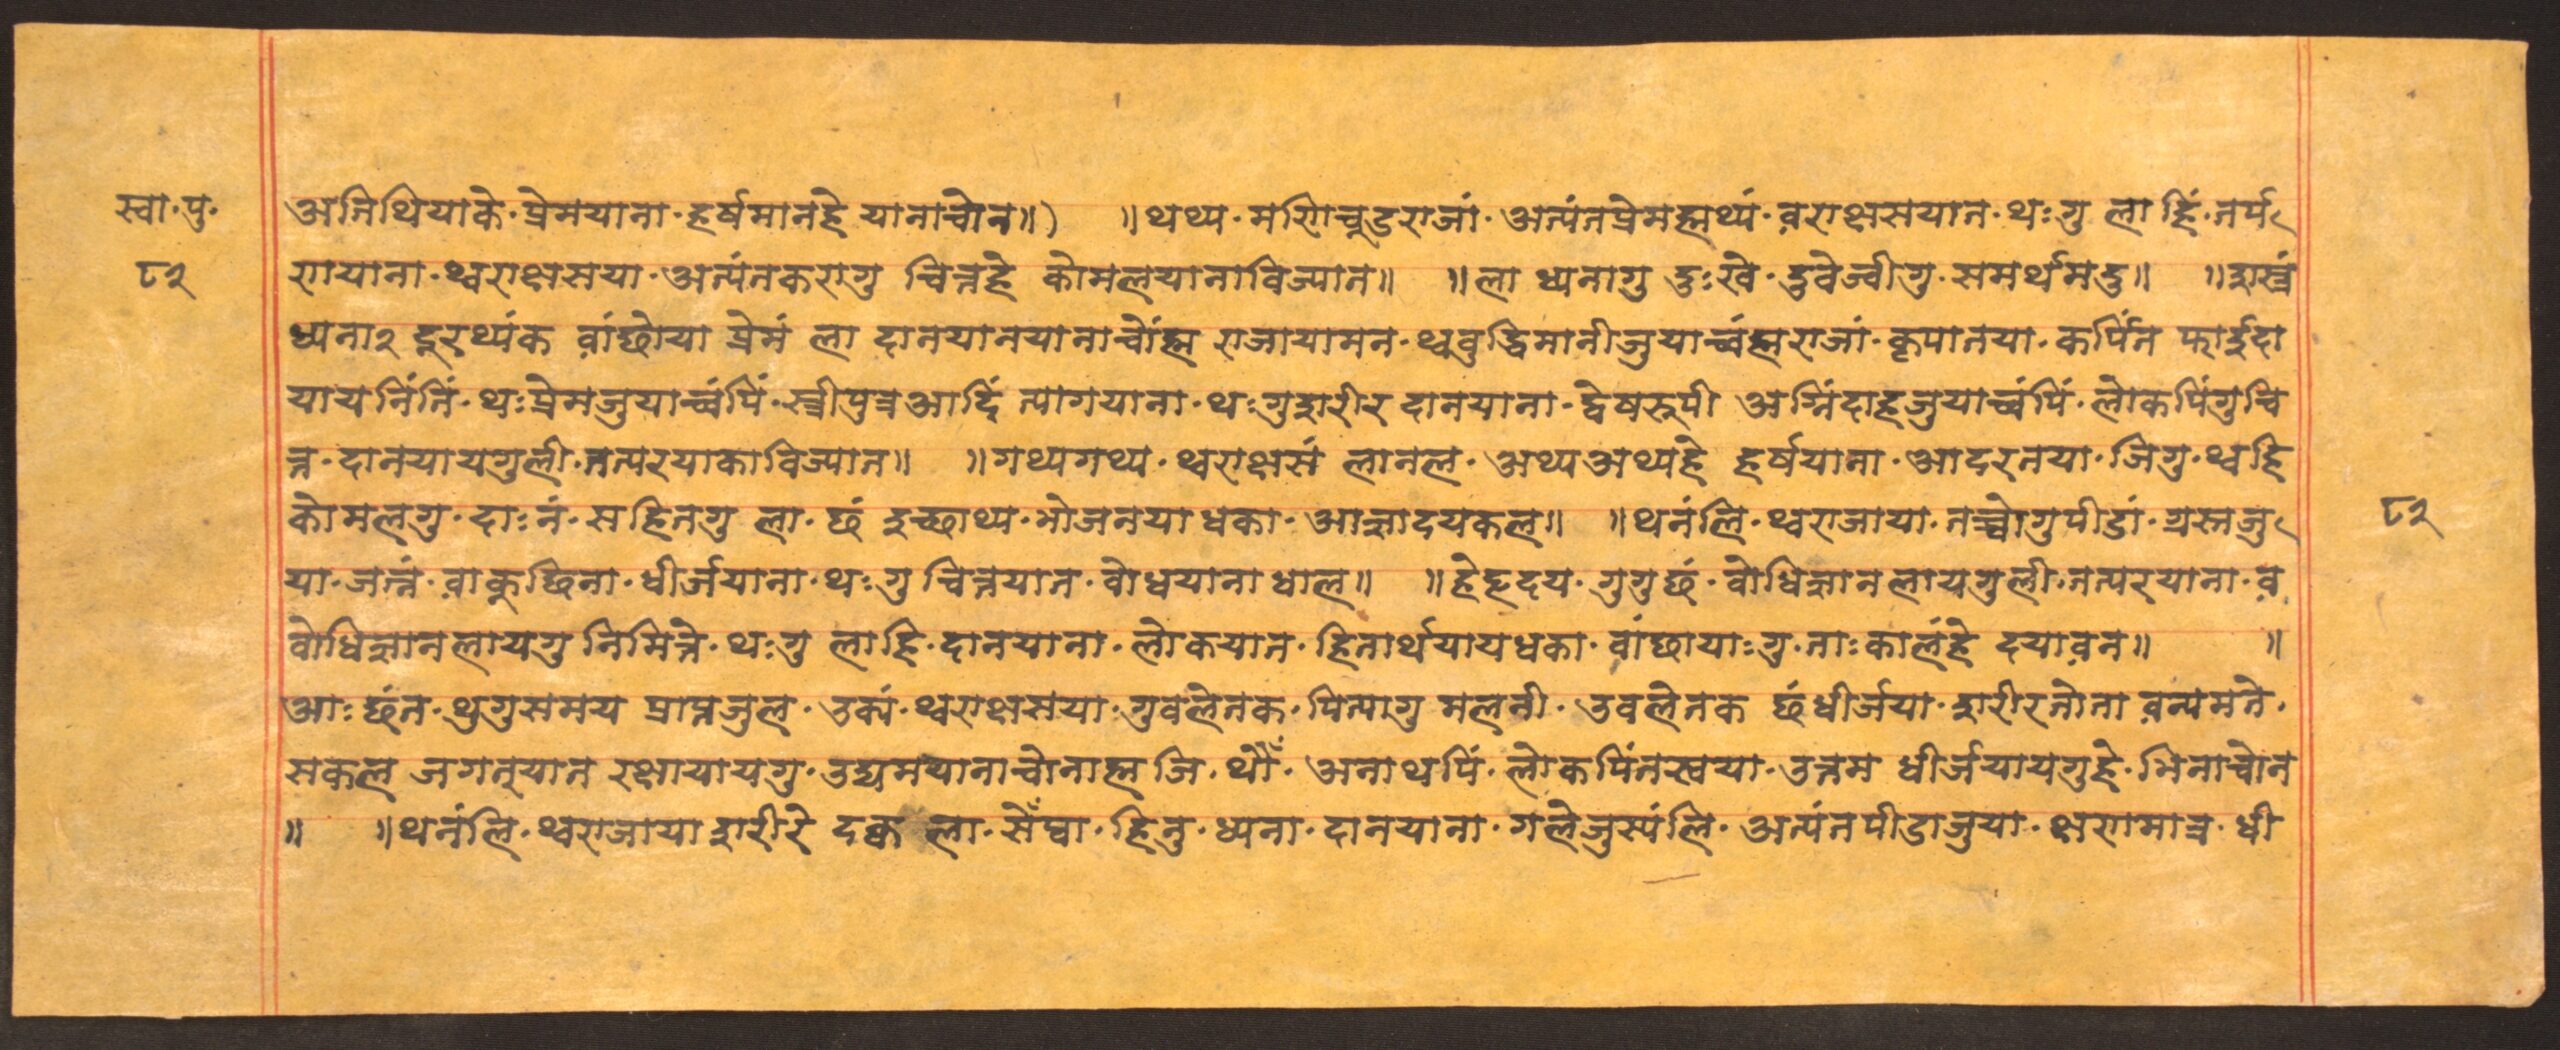 स्वा॰पु॰
८२
अतिथियाके॰प्रेमयाना॰हर्षमानहे यानाच्वोन॥) ॥थथ्य॰मणिचूडराजां॰अत्यंतप्रेमह्मथ्यं॰व़राक्षसयात॰थःगु लाहिं॰तर्प्प
णयाना॰थ्वराक्षसया॰अत्यंतकरागु चित्तहे कोमलयानाविज्यात॥ ॥ला ध्यनागु दुःखे॰दुवेज्वीगु॰समर्थमदु॥ ॥शस्त्रं
ध्यना२ दूरथ्यंक व़ांछोया प्रेमं ला दानयानयानाच्वोंह्म राजायामन॰थ्वबुद्धिमानीजुयाच्वंह्मराजां॰कृपातया॰कपिंत फाईदा
यायनिंतिं॰थःप्रेमजुयाच्वंपिं॰स्त्रीपुत्रआदिं त्यागयाना॰थःगुशरीर दानयाना॰द्वेषरूपी अग्निंदाहजुयाच्वंपिं॰लोकपिंगुचि
त्त॰दानयायगुली॰तत्परयाकाविज्यात॥ ॥गथ्यगथ्य॰थ्वराक्षसं लानल॰अथ्यअथ्यहे हर्षयाना॰आदरनया॰जिगु॰थ्वहि
कोमलगु॰दाःनं॰सहितगु ला॰छं इच्छाथ्य॰भोजनयाधका॰आज्ञादयकल॥ ॥थनंलि॰थ्वराजाया॰तच्वोगुपीडां॰ग्रस्तजु
या॰जत्नं॰व़ाकुछिना॰धीर्जयाना॰थःगु चित्तयात॰वोधयाना धाल॥ ॥हेहृदय॰गुगुछं॰वोधिज्ञानलायगुली॰तत्परयाना॰व़
वोधिज्ञानलायगु निमित्ते॰थःगु लाहि॰दानयाना॰लोकयात॰हितार्थयायधका॰वांछायाःगु॰नाःकालंहे दयाव़न॥ ॥
आःछंत॰थुगुसमय प्राप्तजुल॰उक्यं॰थ्वराक्षसया॰गुवलेतक॰पित्यागु मलनी॰उवलेतक छंधीर्जया॰शरीरतोता व़न्यमते॰
सकल जगत्‌यात रक्षायायगु॰उद्यमयानाच्वोनाह्म जि॰थौँ॰अनाथपिं॰लोकपिंतस्वया॰उत्तम धीर्जयायगुहे॰भिनाच्वोन
॥ ॥थनंलि॰थ्वराजाया शरीरे दक्व ला॰सेँघ्वा॰हिनु॰ध्यना॰दानयाना॰गलेजुस्यंलि॰अत्यंतपीडाजुया॰क्षणमात्र॰धी
८२